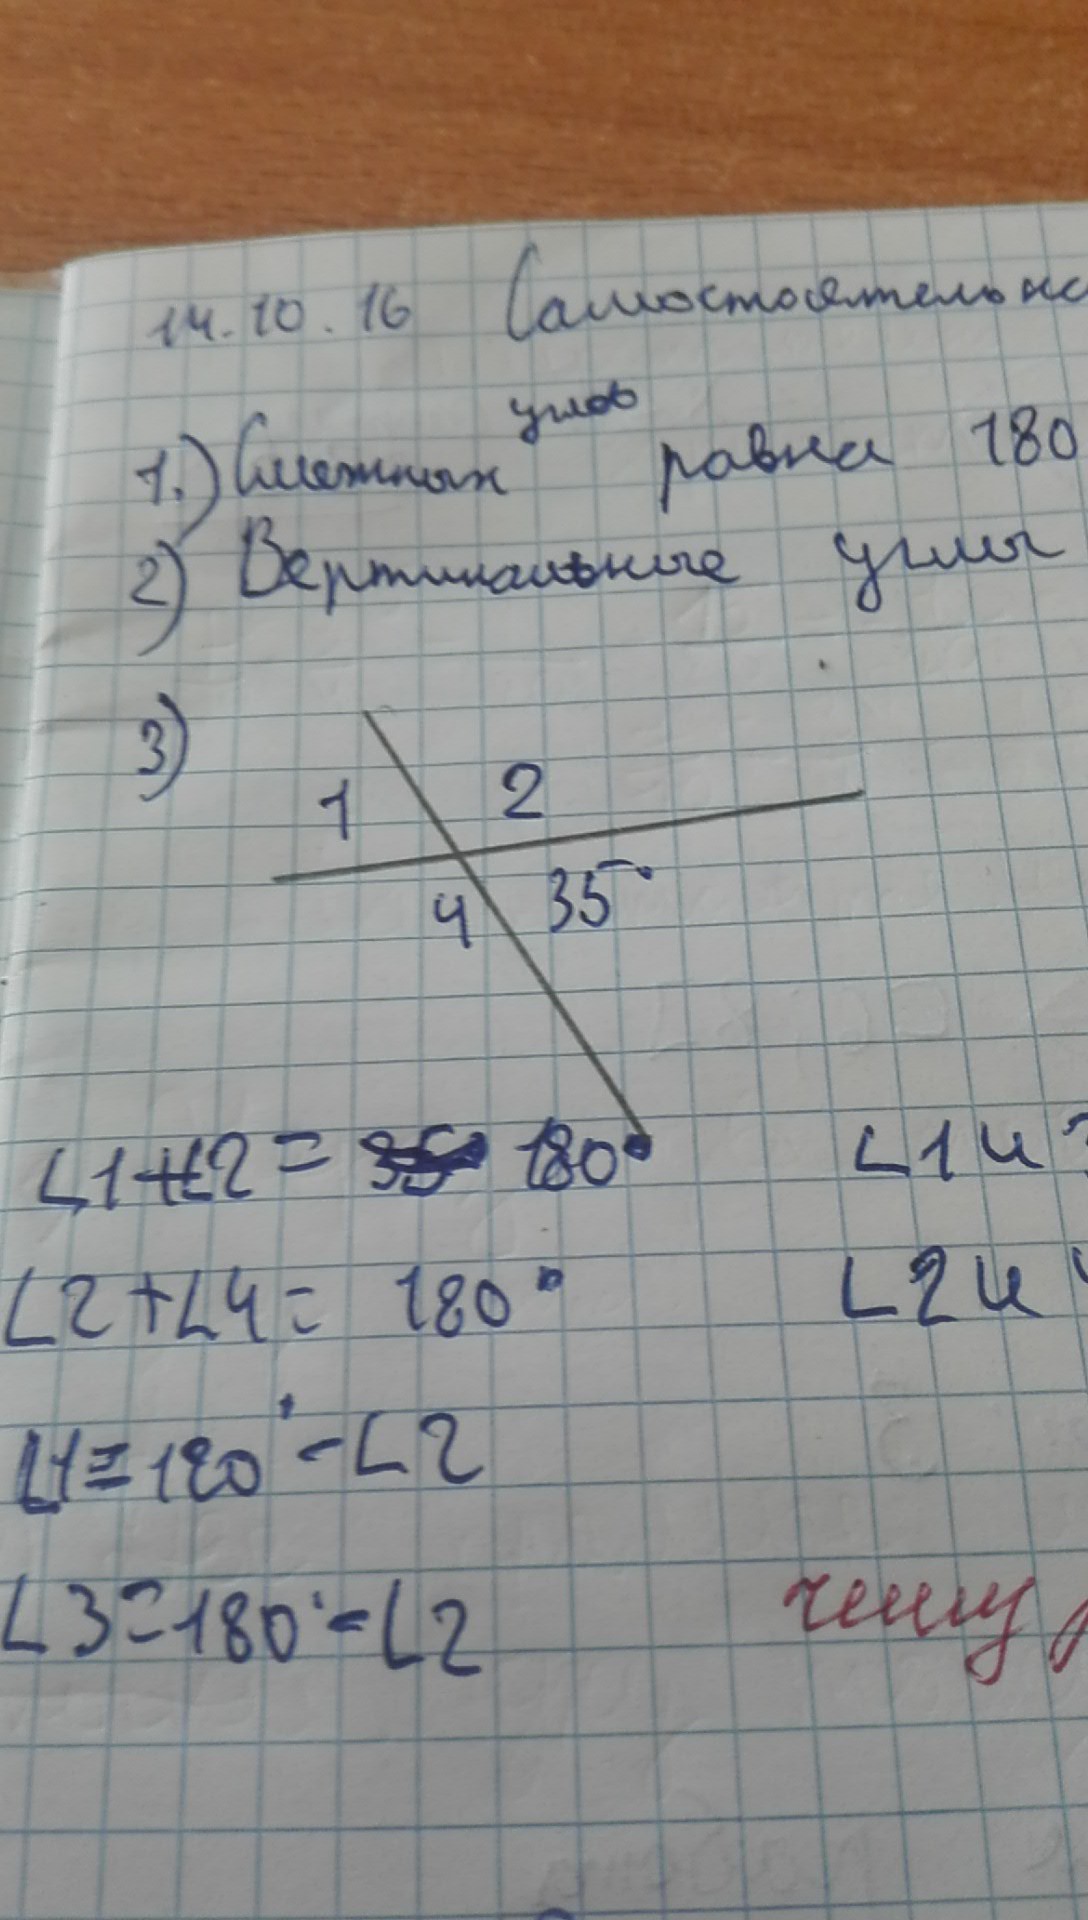 14.10.16 Самостоятельно
углов
1.) Смежных равна 180
2) Вертикальные углы
3)
1 2
4 35°
∠1+∠2= 180°
∠1 и
∠2+∠4= 180°
∠2 и
∠1=180°-∠2
∠3=180°-∠2
чему